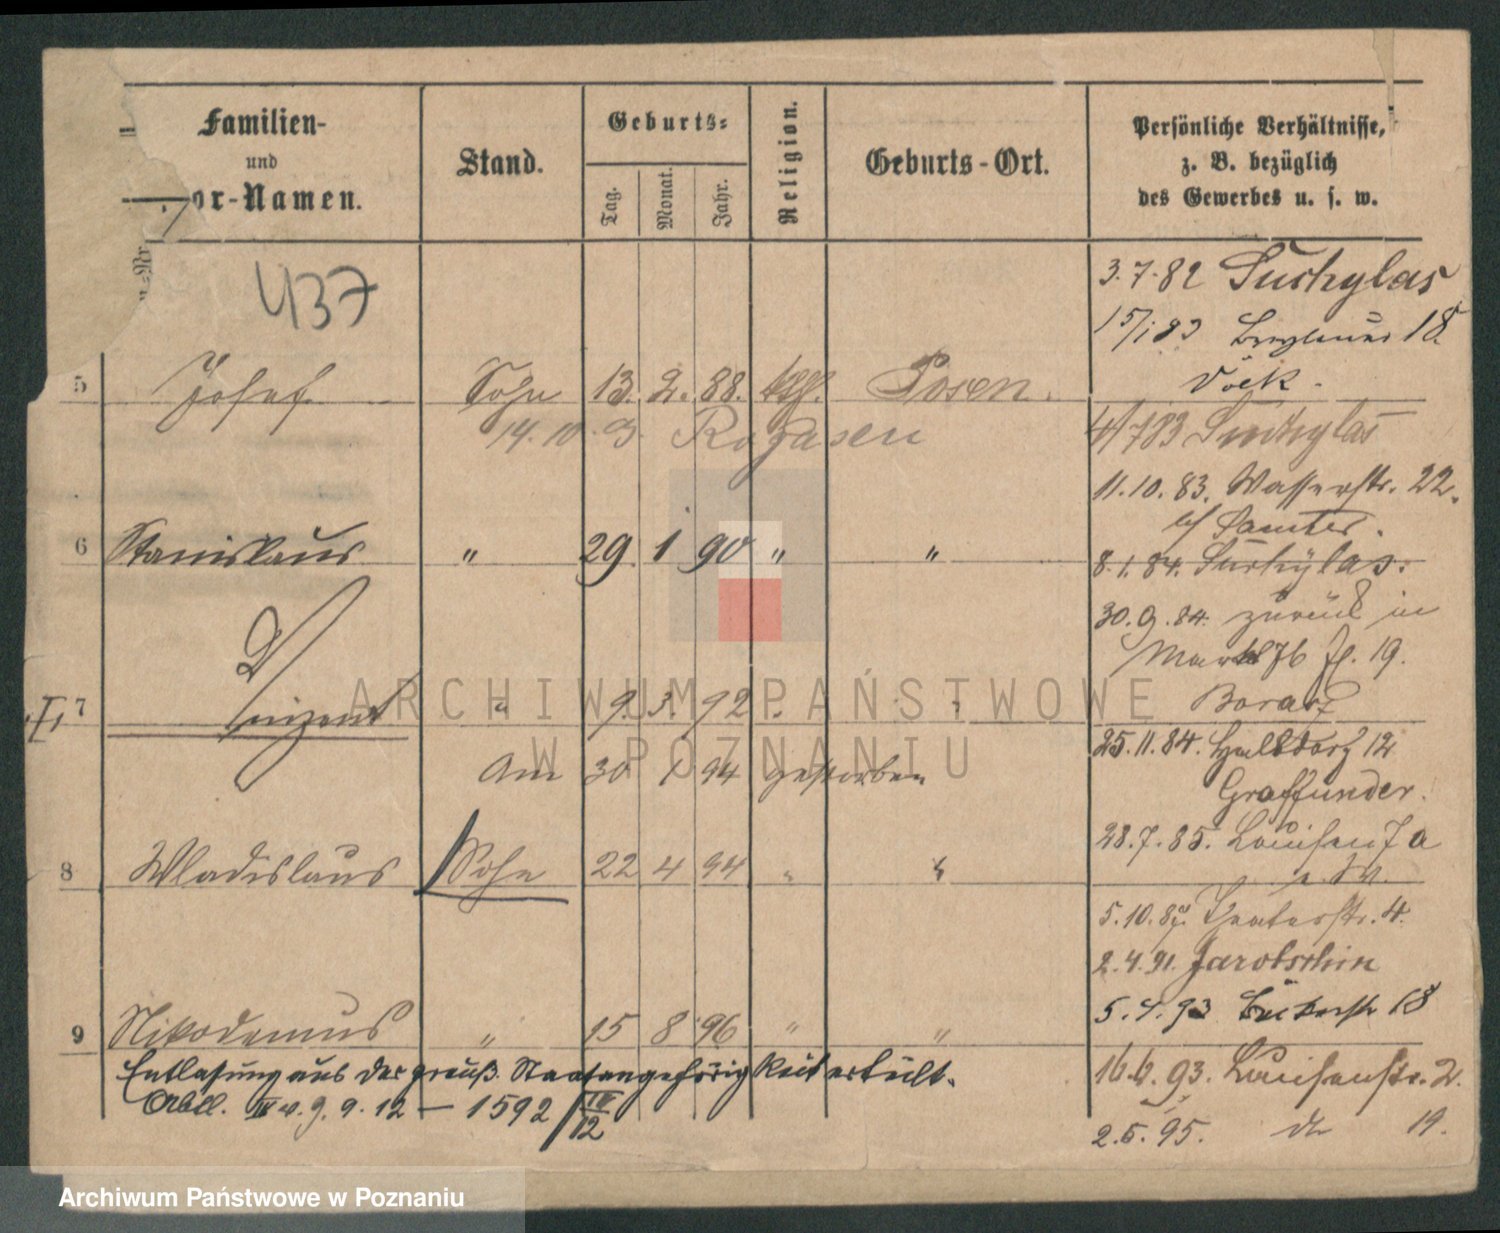 Familien-
und
or-Namen.
Stand.
Geburts-
Tag.
Monat.
Jahr.
Religion.
Geburts-Ort.
Persönliche Verhältnisse,
z. B. bezüglich
des Gewerbes u. s. w.
437
5 Josef Sohn 13. 2. 88. kth. Posen.
14. 10. 9. Rogasen
6 Stanislaus " 29. 1 90 " "
7 9. 3. 92
Am 30 1 94 gestorben
8 Wladislaus Sohn 22 4 94 " "
9 Nikodemus " 15 8 96 " "
Entlaßung aus der preuß. Staatsangehörigkeit erteilt.
IV v. 9. 9. 12 — 1592/IV 12
3. 7. 82 Suchylas
15/1 83 18
4/7 83 Suchylas
11. 10. 83. Wasserstr. 22.
b/ Samter.
8. 1. 84. Suchylas.
30. 9. 84. zurück in
Markt 76 19.
25. 11. 84. Halbdorf 12
Graffunder.
28. 7. 85. Louisen 7a
5. 10. 87. Theaterstr. 4.
2. 4. 91. Jarotschin
5. 4. 93 Bäckerstr 18
16. 6. 93. Louisenstr. 2.
2. 5. 95. do 19.
ARCHIWUM PAŃSTWOWE
W POZNANIU
Archiwum Państwowe w Poznaniu